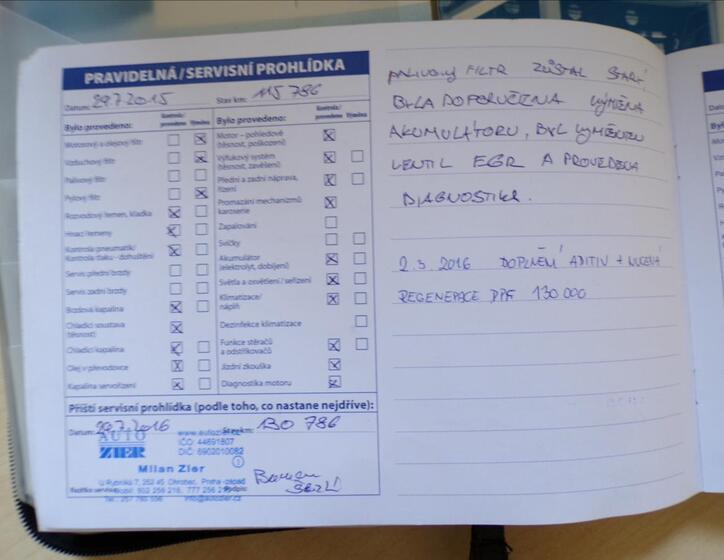 PRAVIDELNÁ/SERVISNÍ PROHLÍDKA
Datum: 29.7.2015 Stav km: 115 786
Bylo provedeno: Kontrola/provedeno Výměna
Motorový a olejový filtr
Vzduchový filtr
Palivový filtr
Pylový filtr
Rozvodový řemen, kladka
Hnací řemeny
Kontrola pneumatik/
Kontrola tlaku - dohuštění
Servis přední brzdy
Servis zadní brzdy
Brzdová kapalina
Chladicí soustava
(těsnost)
Chladicí kapalina
Olej v převodovce
Kapalina servořízení
Bylo provedeno: Kontrola/provedeno Výměna
Motor – pohledově
(těsnost, poškození)
Výfukový systém
(těsnost, zavěšení)
Přední a zadní náprava,
řízení
Promazání mechanizmů
karoserie
Zapalování
Svíčky
Akumulátor
(elektrolyt, dobíjení)
Světla a osvětlení/seřízení
Klimatizace/
náplň
Dezinfekce klimatizace
Funkce stěračů
a odstřikovačů
Jízdní zkouška
Diagnostika motoru
Příští servisní prohlídka (podle toho, co nastane nejdříve):
Datum: 29.7.2016 Stav km: 130 786
AUTO
ZIER
www.autozier.cz
IČO: 44691807
DIČ: 6902010082
Milan Zier
U Rybníka 7, 252 45 Ohrobec, Praha -západ
Razítko servisu Mobil: 602 256 216, 777 256 Podpis
Tel.: 257 info@autozier.cz
PALIVOVÝ FILTR ZŮSTAL STARÝ,
BYLA DOPORUČENA VÝMĚNA
AKUMULÁTORU, BYL VYMĚNĚN
VENTIL EGR A PROVEDENA
DIAGNOSTIKA.
2.3. 2016 DOPLNĚNÍ ADITIV + NUCENÁ
REGENERACE DPF 130 000